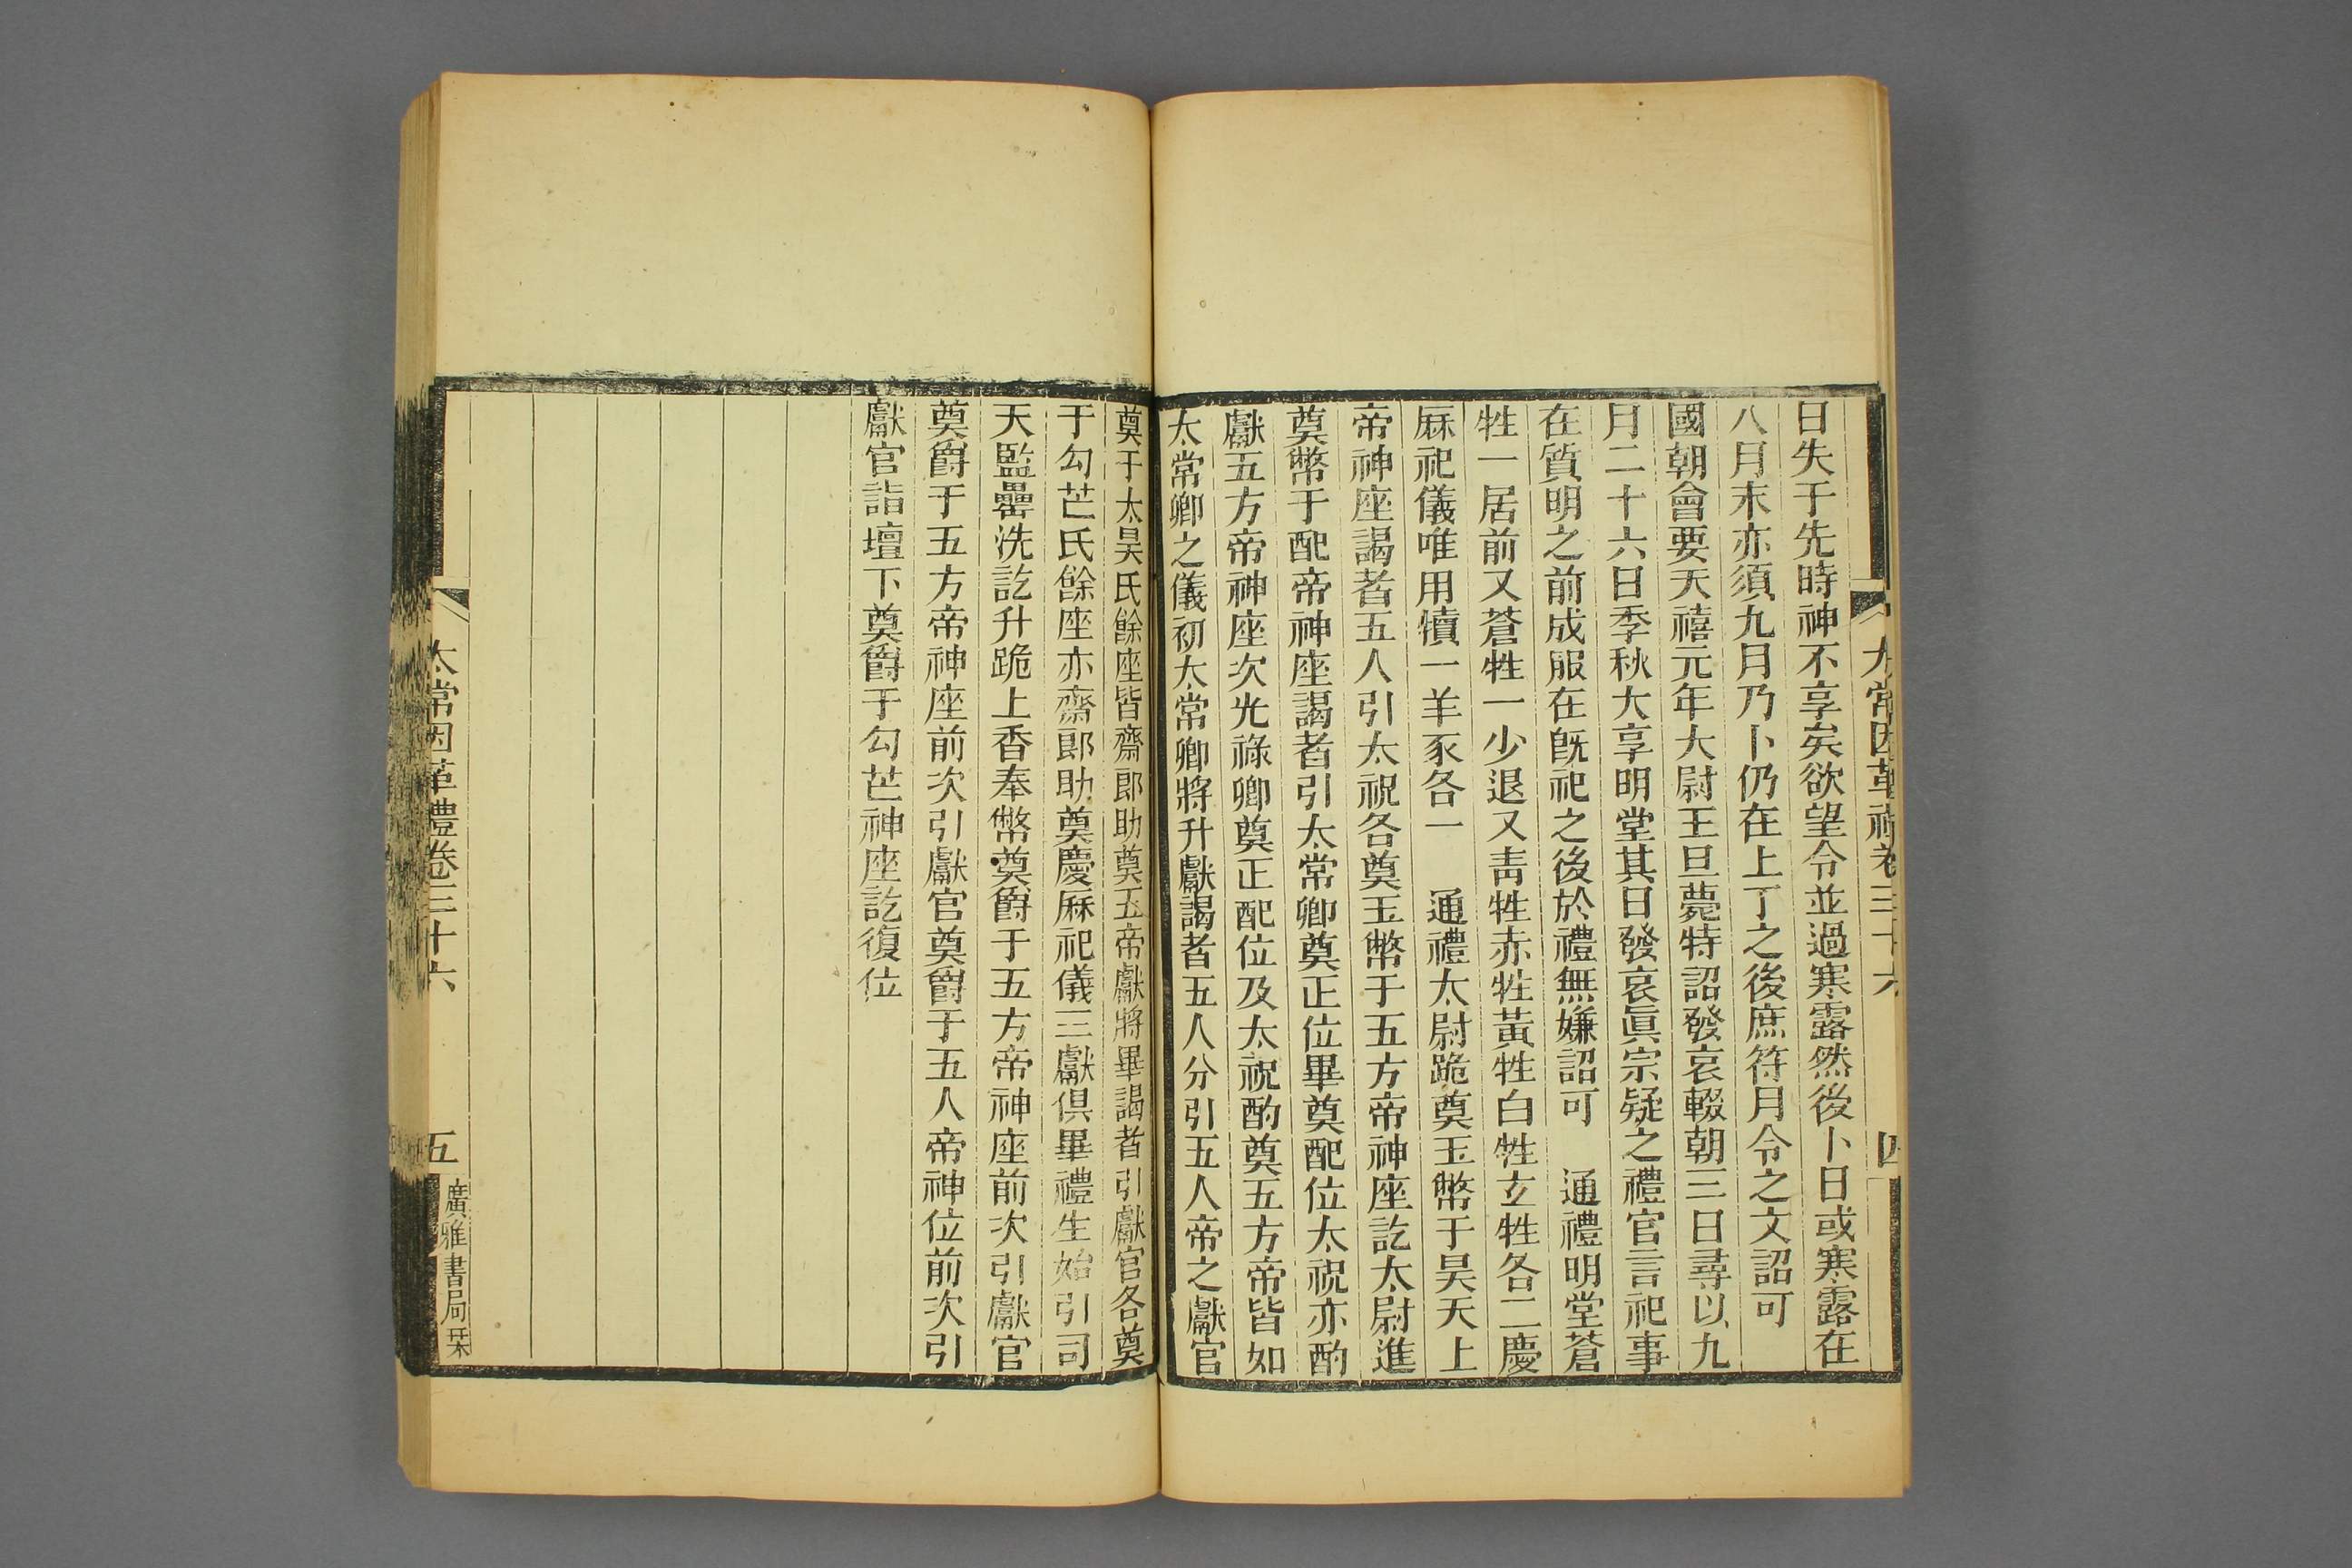 太常因革禮卷三十六
四
日失于先時神不享矣欲望令並過寒露然後卜日或寒露在
八月末亦須九月乃卜仍在上丁之後庶符月令之文詔可
國朝會要天禧元年大尉王旦薨特詔發哀輟朝三日尋以九
月二十六日季秋大享明堂其日發哀眞宗疑之禮官言祀事
在質明之前成服在旣祀之後於禮無嫌詔可　通禮明堂蒼
牲一居前又蒼牲一少退又靑牲赤牲黃牲白牲玄牲各二慶
厤祀儀唯用犢一羊豕各一　通禮太尉跪奠玉幣于昊天上
帝神座謁者五人引太祝各奠玉幣于五方帝神座訖太尉進
奠幣于配帝神座謁者引太常卿奠正位畢奠配位太祝亦酌
獻五方帝神座次光祿卿奠正配位及太祝酌奠五方帝皆如
太常卿之儀初太常卿將升獻謁者五人分引五人帝之獻官
奠于太昊氏餘座皆齋郞助奠五帝獻將畢謁者引獻官各奠
于勾芒氏餘座亦齋郞助奠慶厤祀儀三獻俱畢禮生始引司
天監罍洗訖升跪上香奉幣奠爵于五方帝神座前次引獻官
奠爵于五方帝神座前次引獻官奠爵于五人帝神位前次引
獻官詣壇下奠爵于勾芒神座訖復位
太常因革禮卷三十六
五
廣雅書局栞